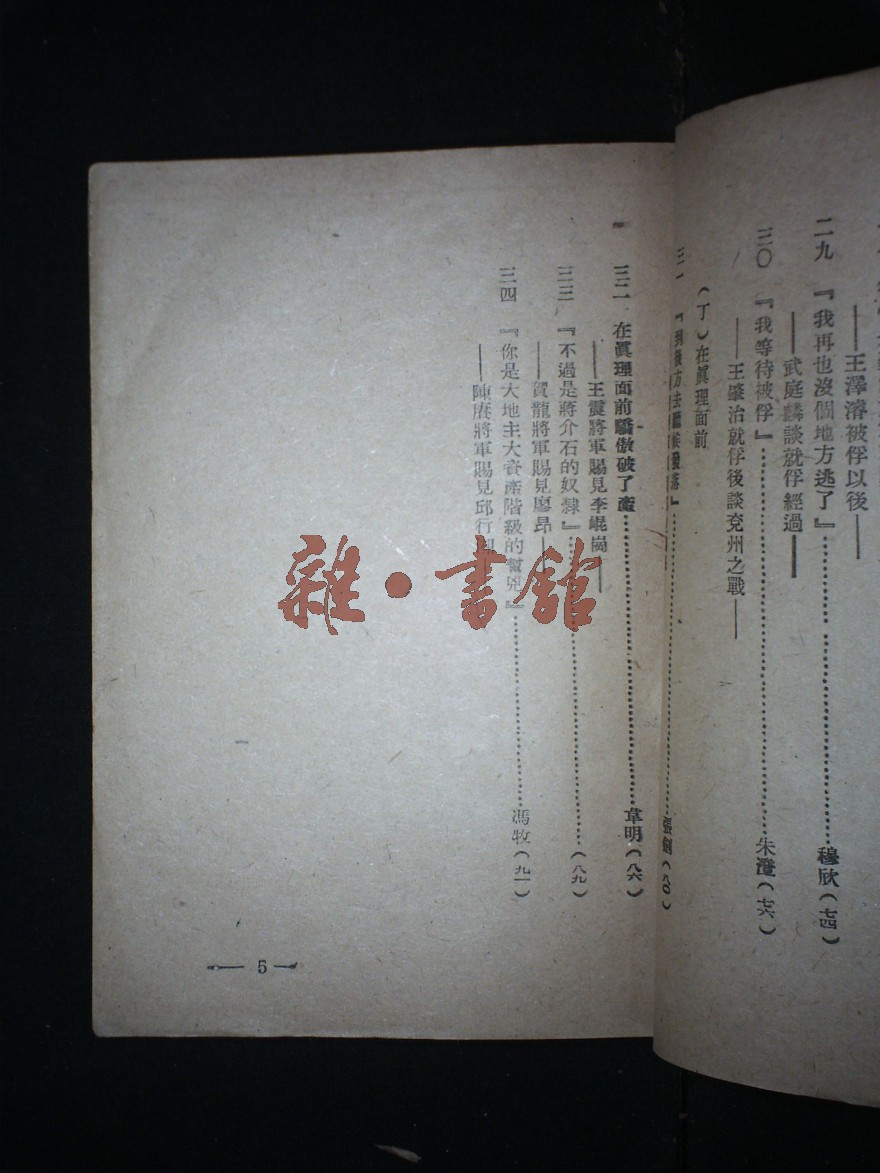 ——王澤濬被俘以後——
二九 『我再也沒個地方逃了』……穆欣(七四)
——武庭麟談就俘經過——
三〇 『我等待被俘』……朱澄(七六)
——王肇治就俘後談兗州之戰——
(丁)在眞理面前
三一 『到後方去聽候發落』……(八〇)
三二 在眞理面前驕傲破了產……韋明(八六)
——王震將軍賜見李崐崗——
三三 『不過是蔣介石的奴隸』……(八九)
——賀龍將軍賜見廖昂——
三四 『你是大地主大資產階級的幫兇』……馮牧(九一)
——陳賡將軍賜見邱行
5
雜·書館